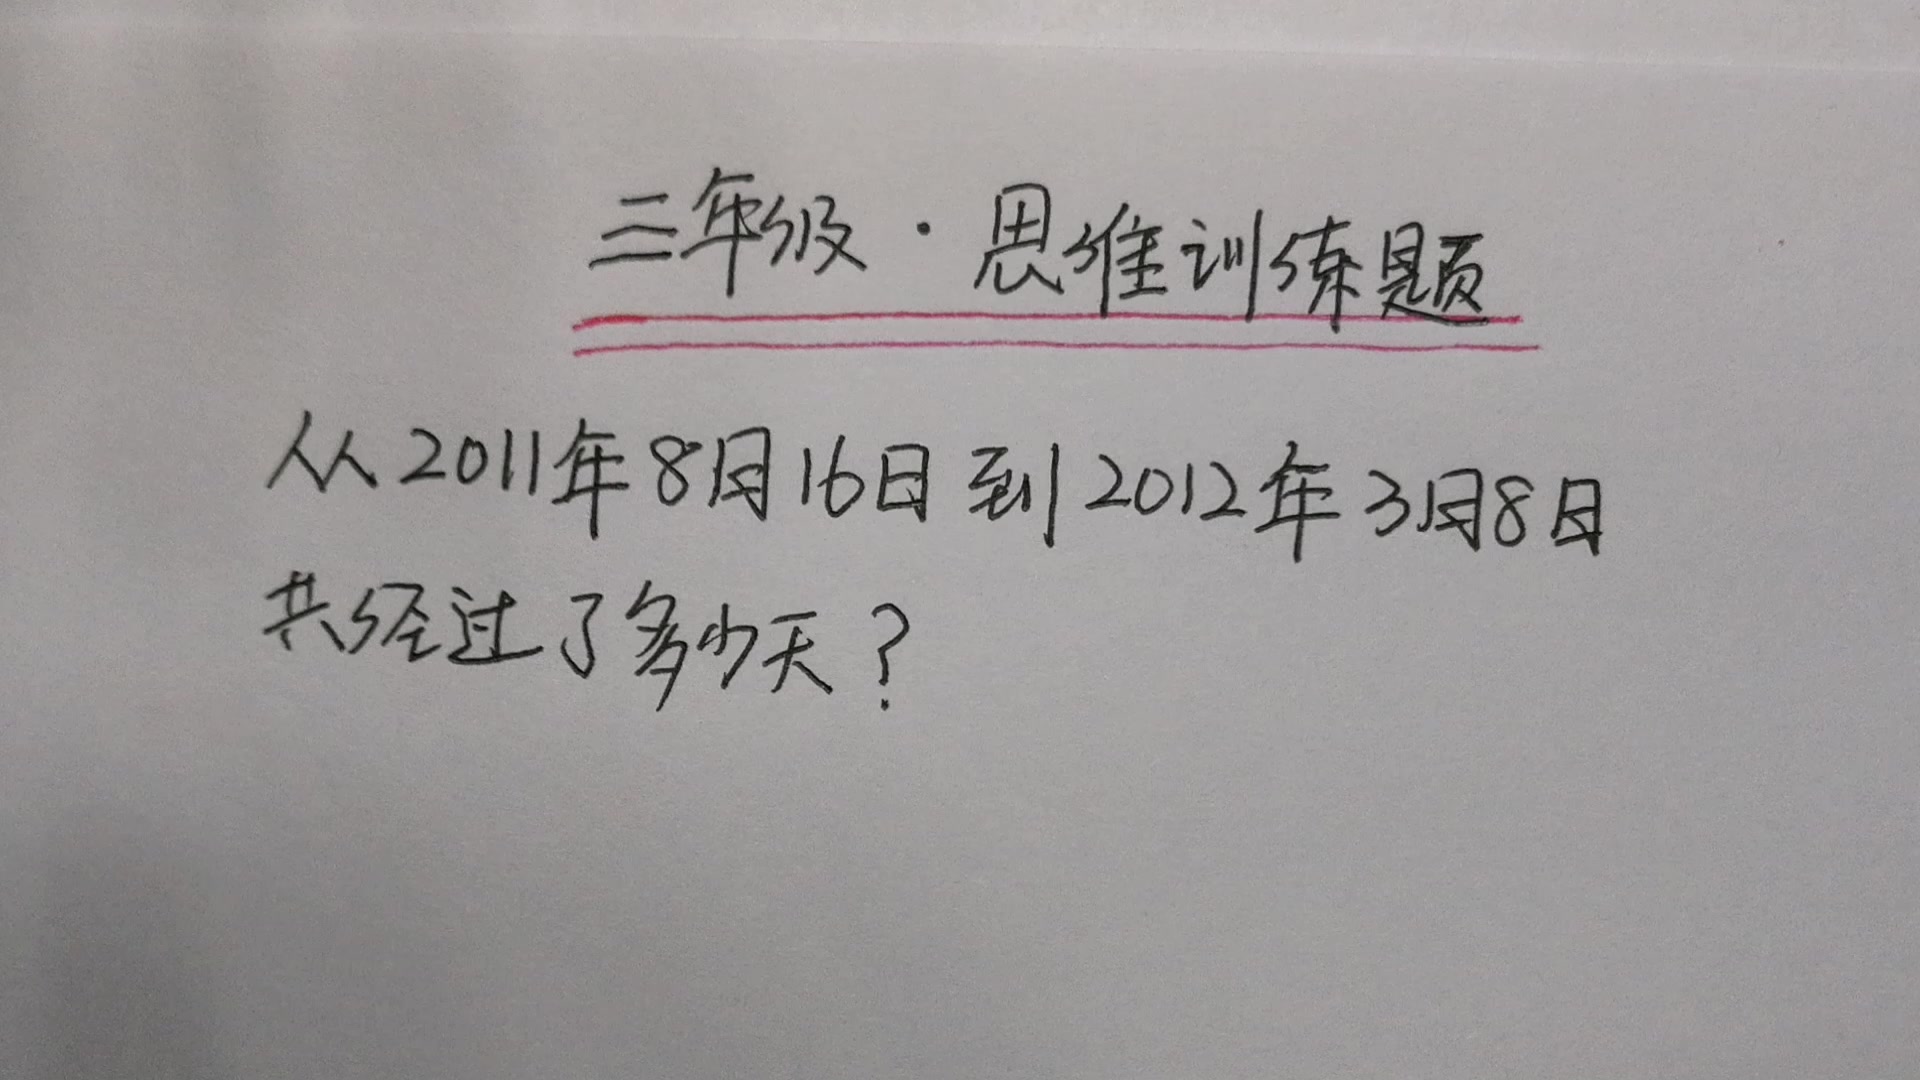 三年级·思维训练题
从2011年8月16日到2012年3月8日
共经过了多少天?